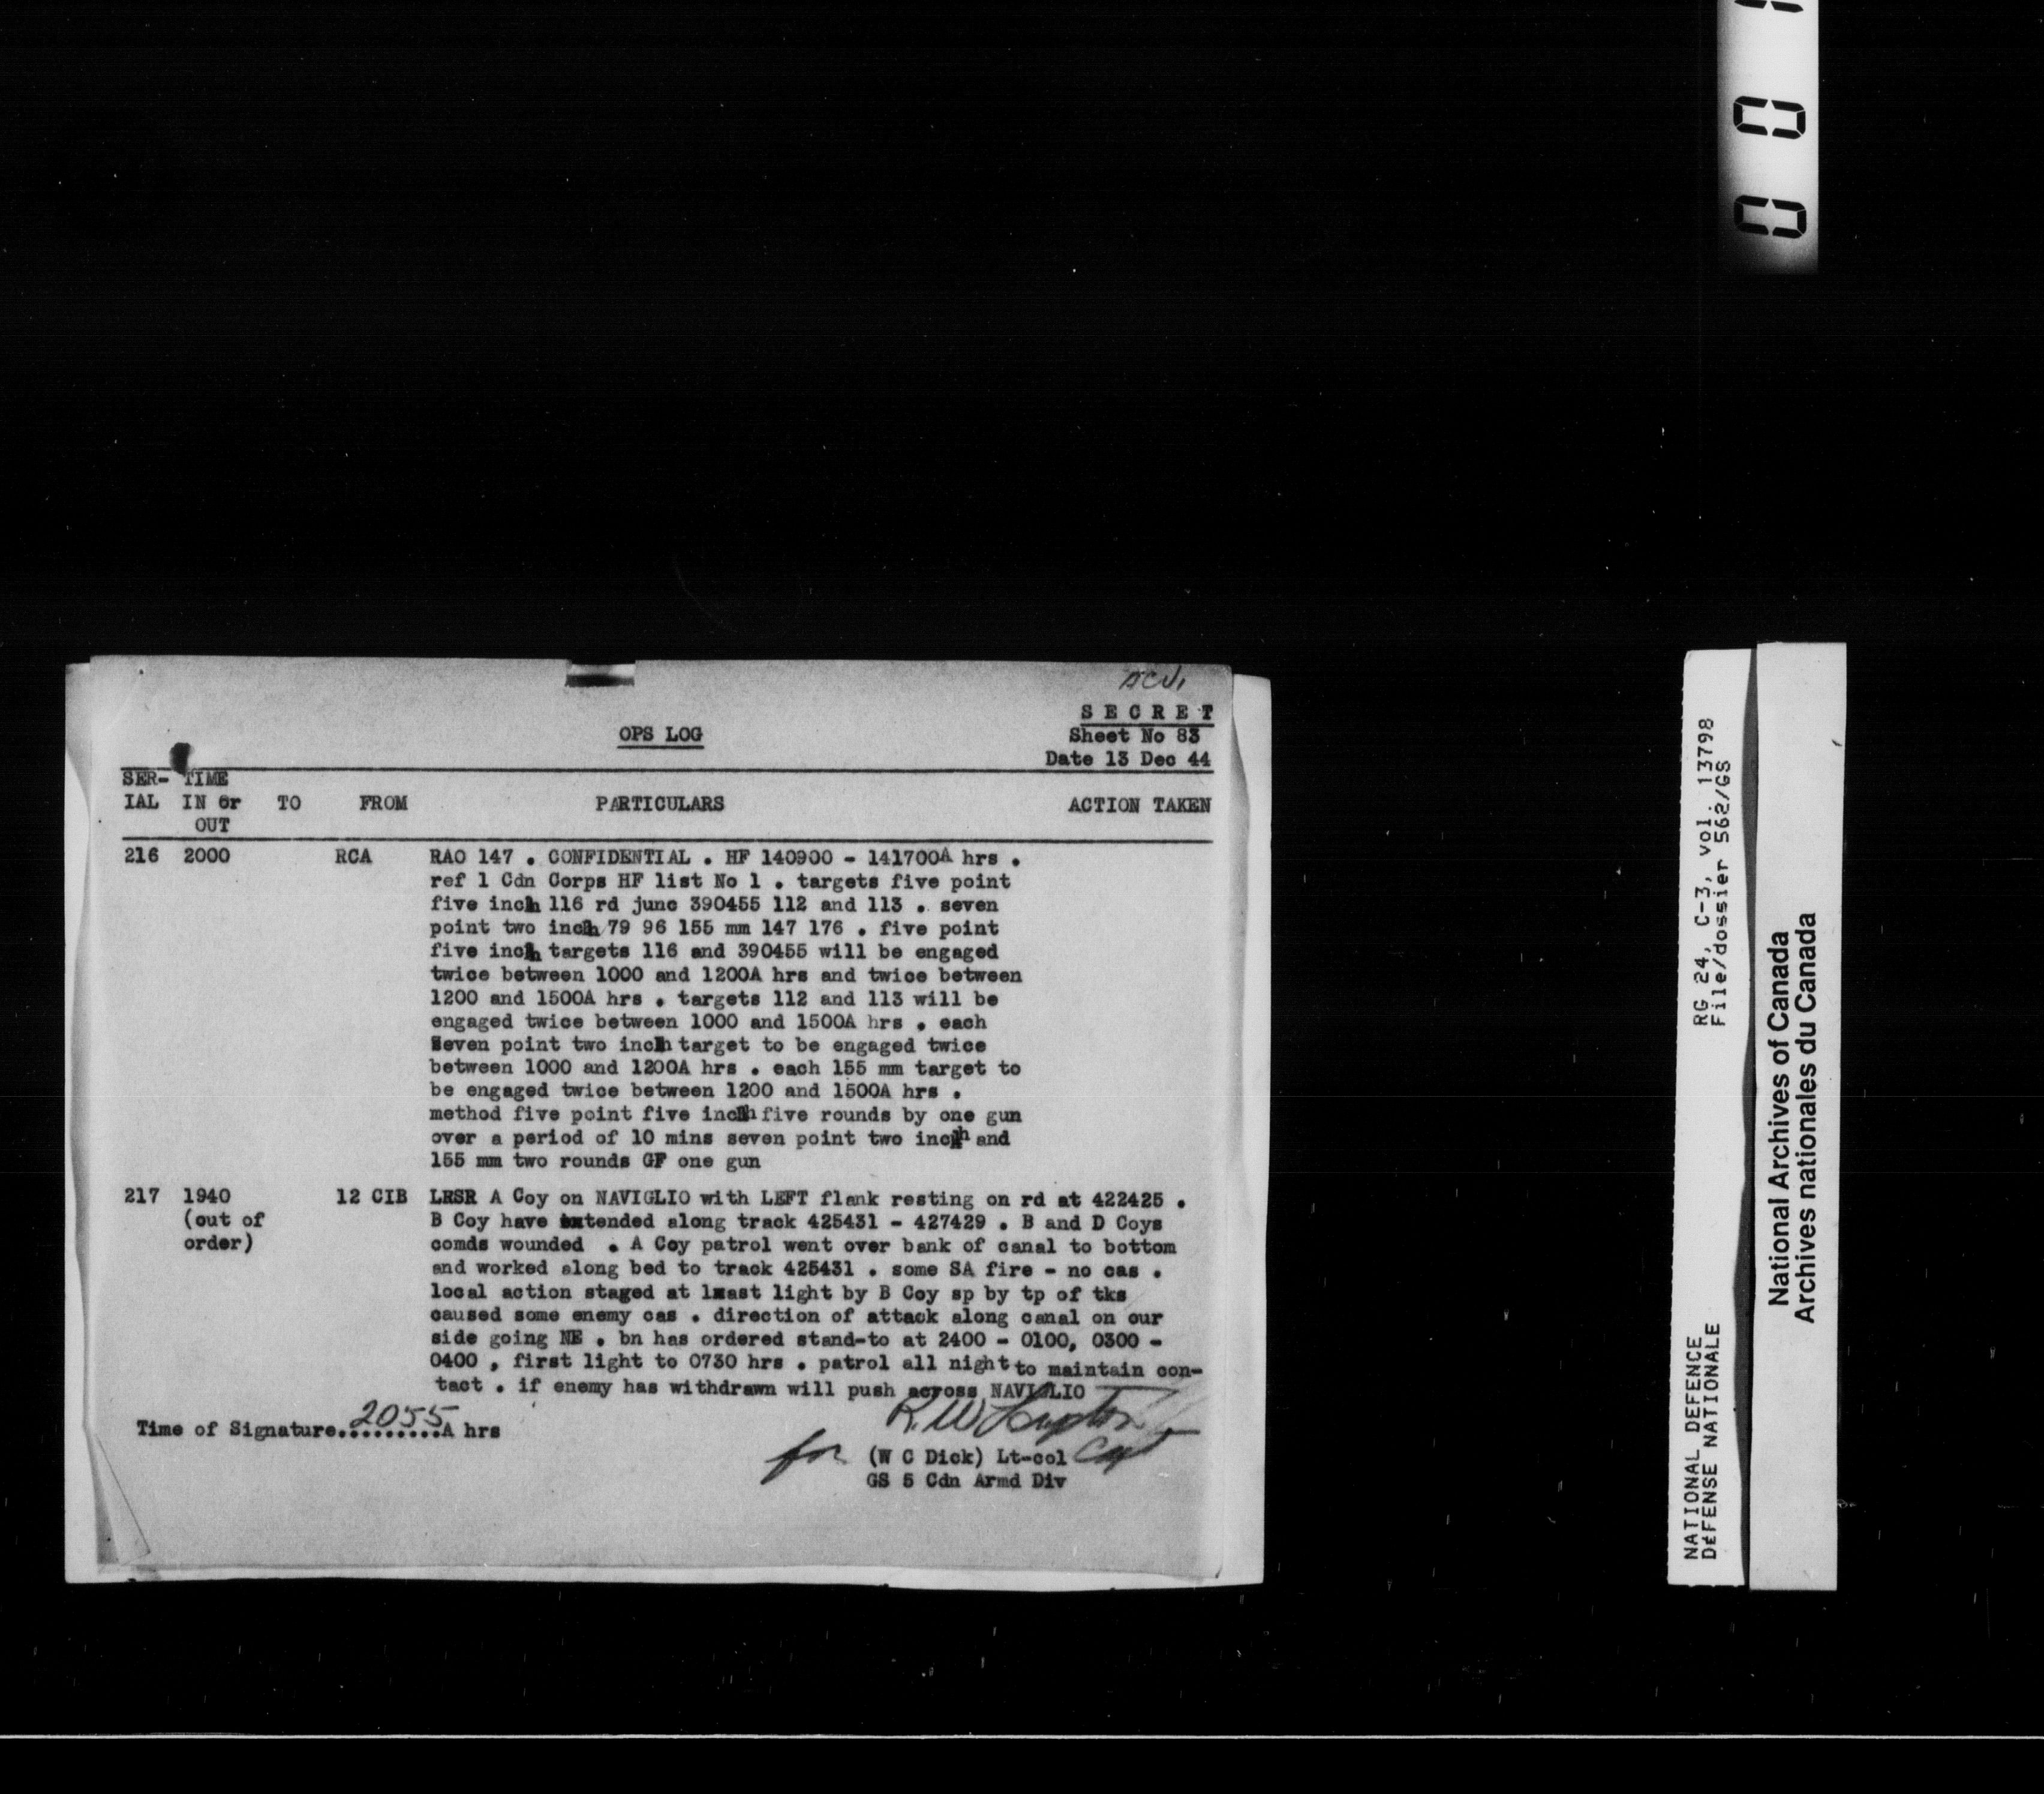 S E C R E T
OPS LOG
Sheet No 83
Date 13 Dec 44
SER- TIME
IAL IN or TO FROM PARTICULARS ACTION TAKEN
OUT
216 2000 RCA RAO 147 . CONFIDENTIAL . HF 140900 - 141700A hrs .
ref 1 Cdn Corps HF list No 1 . targets five point
five inch 116 rd junc 390455 112 and 113 . seven
point two inch 79 96 155 mm 147 176 . five point
five inch targets 116 and 390455 will be engaged
twice between 1000 and 1200A hrs and twice between
1200 and 1500A hrs . targets 112 and 113 will be
engaged twice between 1000 and 1500A hrs . each
seven point two inch target to be engaged twice
between 1000 and 1200A hrs . each 155 mm target to
be engaged twice between 1200 and 1500A hrs .
method five point five inch five rounds by one gun
over a period of 10 mins seven point two inch and
155 mm two rounds GF one gun
217 1940 12 CIB LRSR A Coy on NAVIGLIO with LEFT flank resting on rd at 422425 .
(out of B Coy have extended along track 425431 - 427429 . B and D Coys
order) comds wounded . A Coy patrol went over bank of canal to bottom
and worked along bed to track 425431 . some SA fire - no cas .
local action staged at last light by B Coy sp by tp of tks
caused some enemy cas . direction of attack along canal on our
side going NE . bn has ordered stand-to at 2400 - 0100, 0300 -
0400 , first light to 0730 hrs . patrol all night to maintain con-
tact . if enemy has withdrawn will push across NAVIGLIO
Time of Signature.2055.A hrs
for (W C Dick) Lt-col Capt
GS 5 Cdn Armd Div
RG 24, C-3, vol. 13798
File/dossier 562/GS
NATIONAL DEFENCE
DÉFENSE NATIONALE
National Archives of Canada
Archives nationales du Canada
0 0